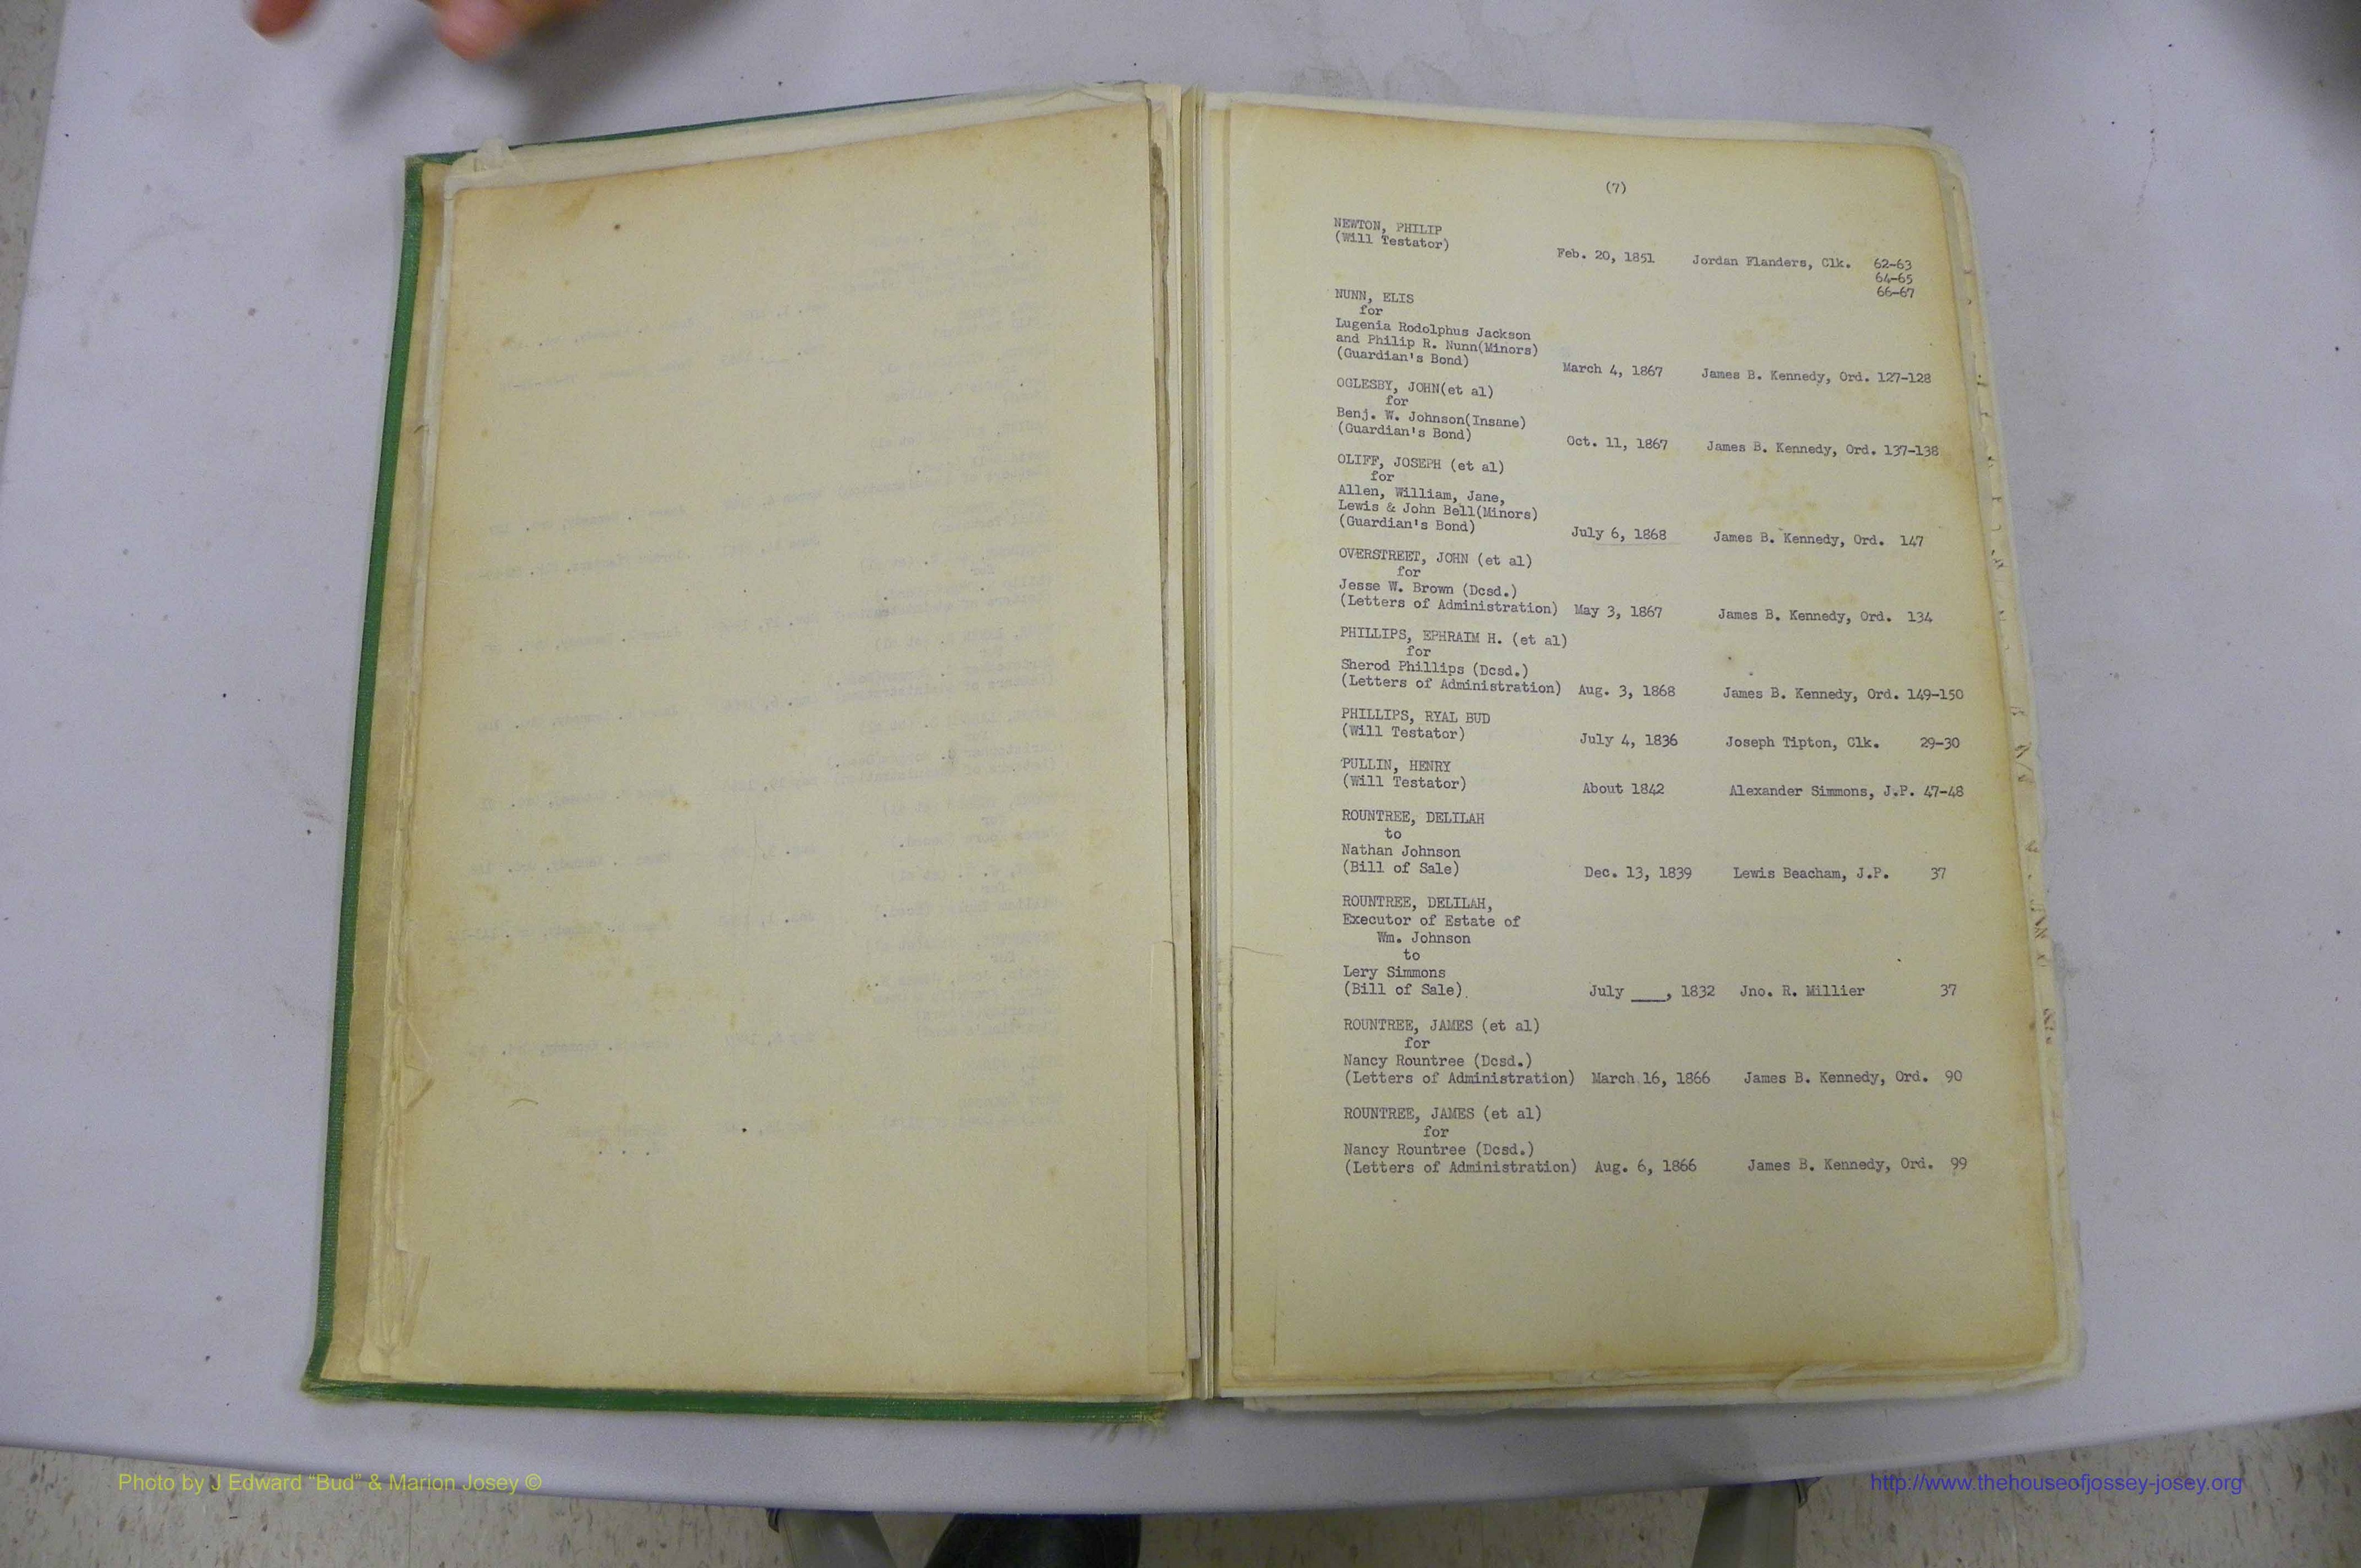 (7)
NEWTON, PHILIP
(Will Testator)
Feb. 20, 1851 Jordan Flanders, Clk. 62-63
64-65
66-67
NUNN, ELIS
for
Lugenia Rodolphus Jackson
and Philip R. Nunn(Minors)
(Guardian's Bond)
March 4, 1867 James B. Kennedy, Ord. 127-128
OGLESBY, JOHN(et al)
for
Benj. W. Johnson(Insane)
(Guardian's Bond)
Oct. 11, 1867 James B. Kennedy, Ord. 137-138
OLIFF, JOSEPH (et al)
for
Allen, William, Jane,
Lewis & John Bell(Minors)
(Guardian's Bond)
July 6, 1868 James B. Kennedy, Ord. 147
OVERSTREET, JOHN (et al)
for
Jesse W. Brown (Dcsd.)
(Letters of Administration) May 3, 1867 James B. Kennedy, Ord. 134
PHILLIPS, EPHRAIM H. (et al)
for
Sherod Phillips (Dcsd.)
(Letters of Administration) Aug. 3, 1868 James B. Kennedy, Ord. 149-150
PHILLIPS, RYAL BUD
(Will Testator)
July 4, 1836 Joseph Tipton, Clk. 29-30
PULLIN, HENRY
(Will Testator)
About 1842 Alexander Simmons, J.P. 47-48
ROUNTREE, DELILAH
to
Nathan Johnson
(Bill of Sale) Dec. 13, 1839 Lewis Beacham, J.P. 37
ROUNTREE, DELILAH,
Executor of Estate of
Wm. Johnson
to
Lery Simmons
(Bill of Sale). July ___, 1832 Jno. R. Millier 37
ROUNTREE, JAMES (et al)
for
Nancy Rountree (Dcsd.)
(Letters of Administration) March 16, 1866 James B. Kennedy, Ord. 90
ROUNTREE, JAMES (et al)
for
Nancy Rountree (Dcsd.)
(Letters of Administration) Aug. 6, 1866 James B. Kennedy, Ord. 99
Photo by J Edward “Bud” & Marion Josey ©
http://www.thehouseofjossey-josey.org